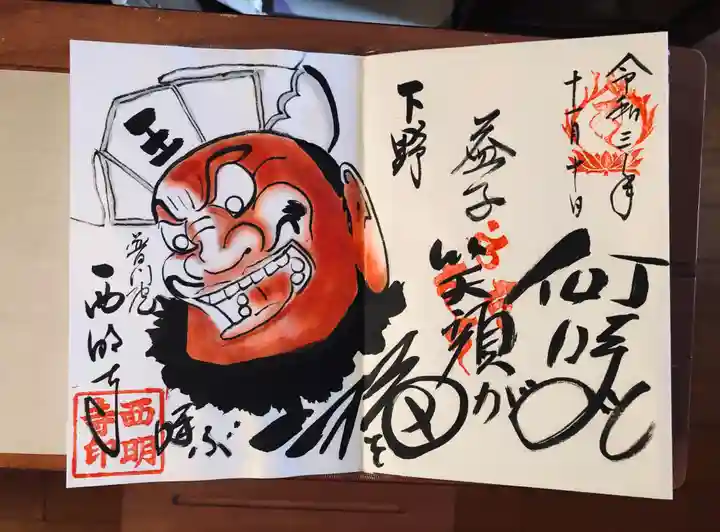 令和三年
十一月十日
何時も
笑顔が
福を
呼ぶ
益子
下野
王
普門院
西明寺
西明
寺印